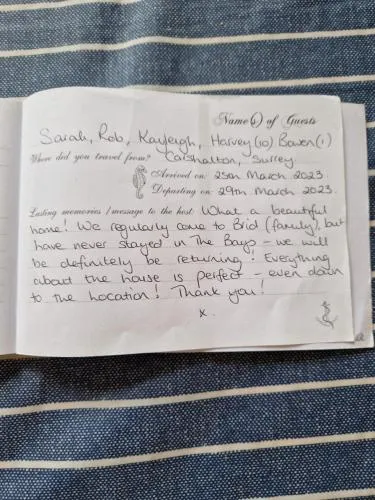 Name(s) of Guests
Sarah, Rob, Kayleigh, Harvey(10) Bowen(1)
Where did you travel from? Carshalton, Surrey.
Arrived on: 25th March 2023.
Departing on: 29th March 2023.
Lasting memories / message to the host: What a beautiful
home! We regularly come to Brid (family), but
have never stayed in The Bays - we will
be definitely be returning! Everything
about the house is perfect - even down
to the location! Thank you!
x.